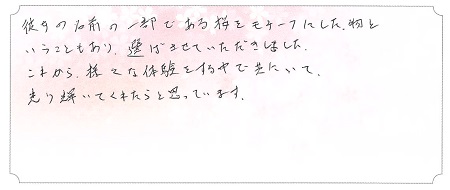 彼女の名前の一部である桜をモチーフにした物と
いうこともあり、選ばさせていただきました。
これから、様々な体験をする中で共にいて、
光り輝いてくれたらと思っています。